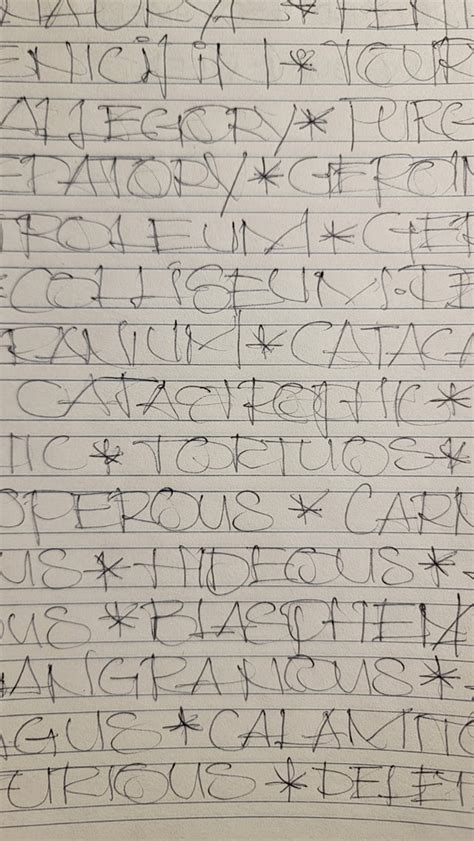 ENICILIN * TOUR
ALLEGORY * PURG
ERATORY * GERON
ROLEUM * GER
COLLISEUM
RANIUM * CATAC
CATASTROPHIC *
TIC * TORTUOS *
OPEROUS * CARN
US * HIDEOUS *
OUS * BLASPHEM
ANGRANOUS *
AGUS * CALAMITO
URIOUS * DELET